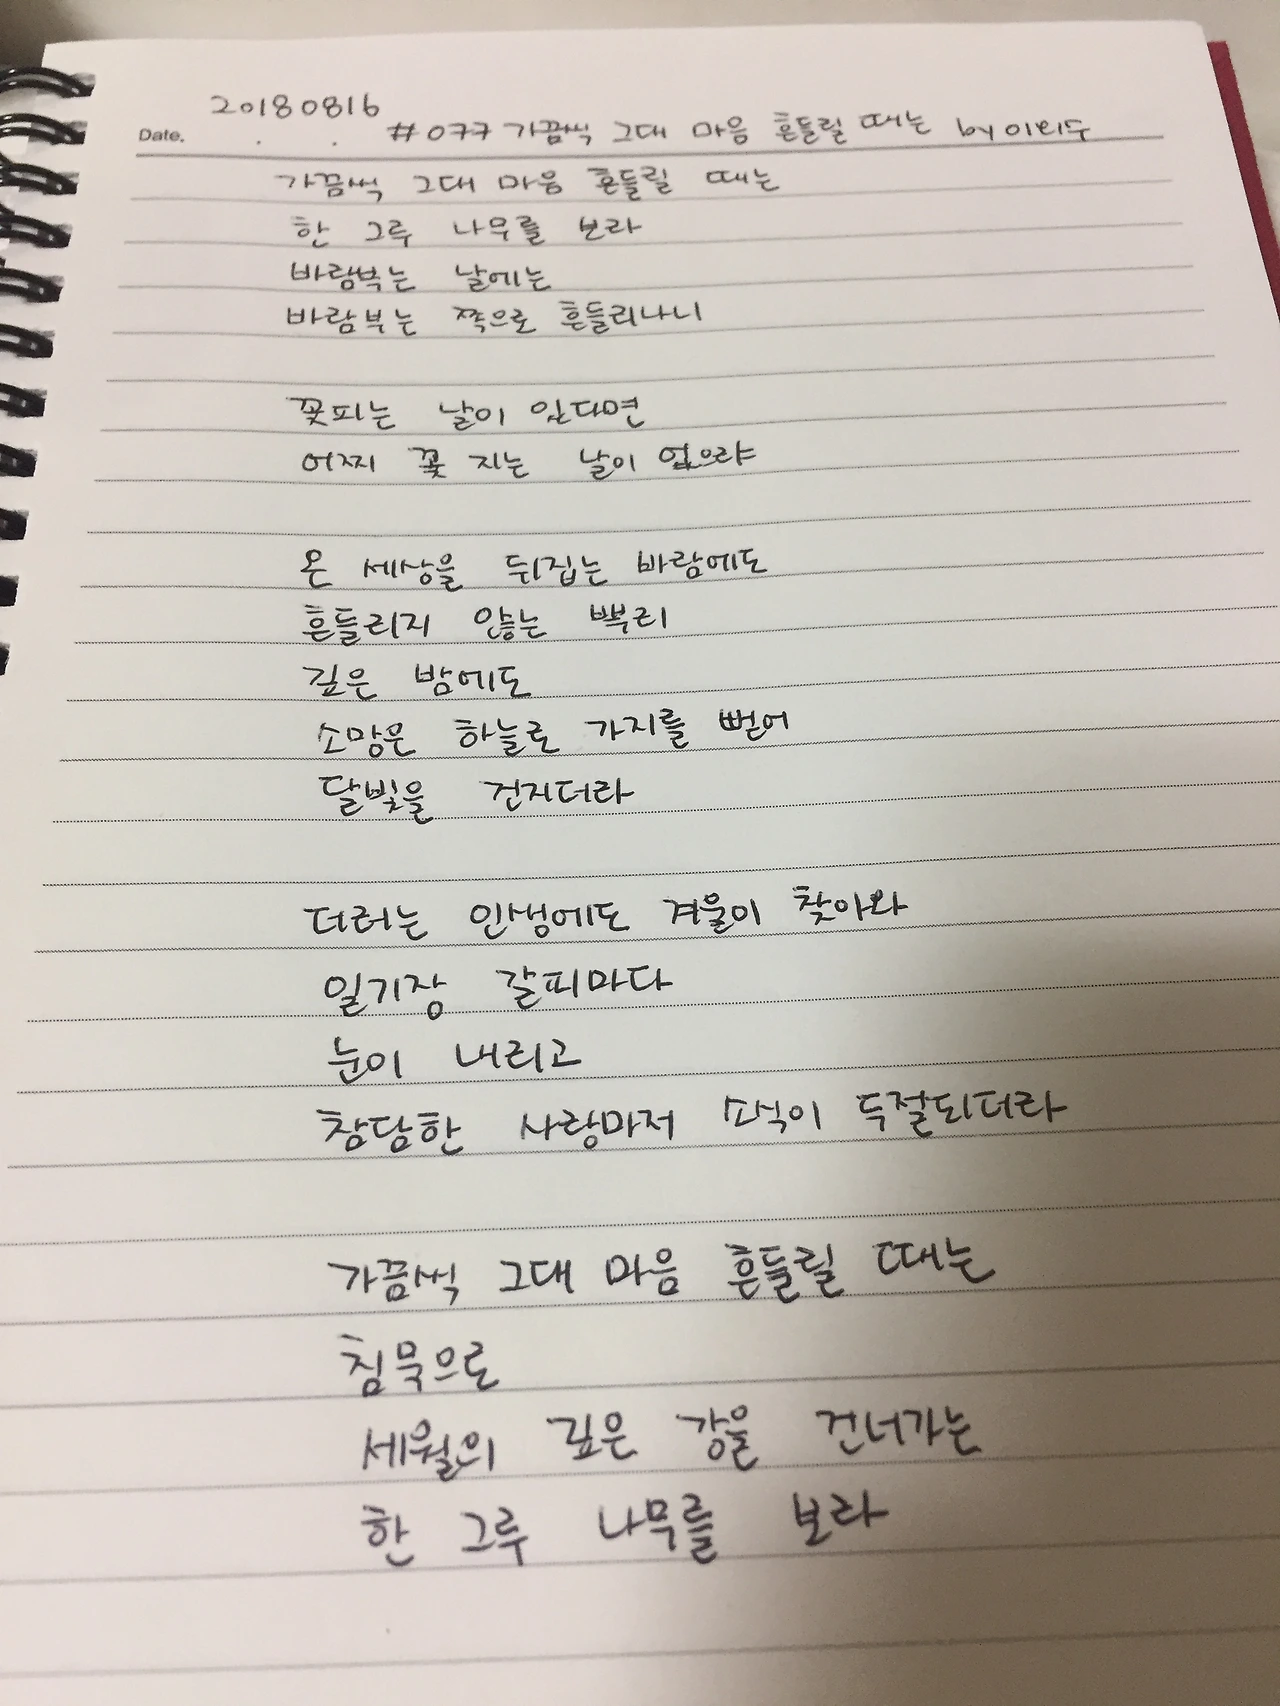 20180816
Date. . . #077 가끔씩 그대 마음 흔들릴 때는 by 이외수
가끔씩 그대 마음 흔들릴 때는
한 그루 나무를 보라
바람부는 날에는
바람부는 쪽으로 흔들리나니
꽃피는 날이 있다면
어찌 꽃 지는 날이 없으랴
온 세상을 뒤집는 바람에도
흔들리지 않는 뿌리
깊은 밤에도
소망은 하늘로 가지를 뻗어
달빛을 건지더라
더러는 인생에도 겨울이 찾아와
일기장 갈피마다
눈이 내리고
참담한 사랑마저 소식이 두절되더라
가끔씩 그대 마음 흔들릴 때는
침묵으로
세월의 깊은 강을 건너가는
한 그루 나무를 보라